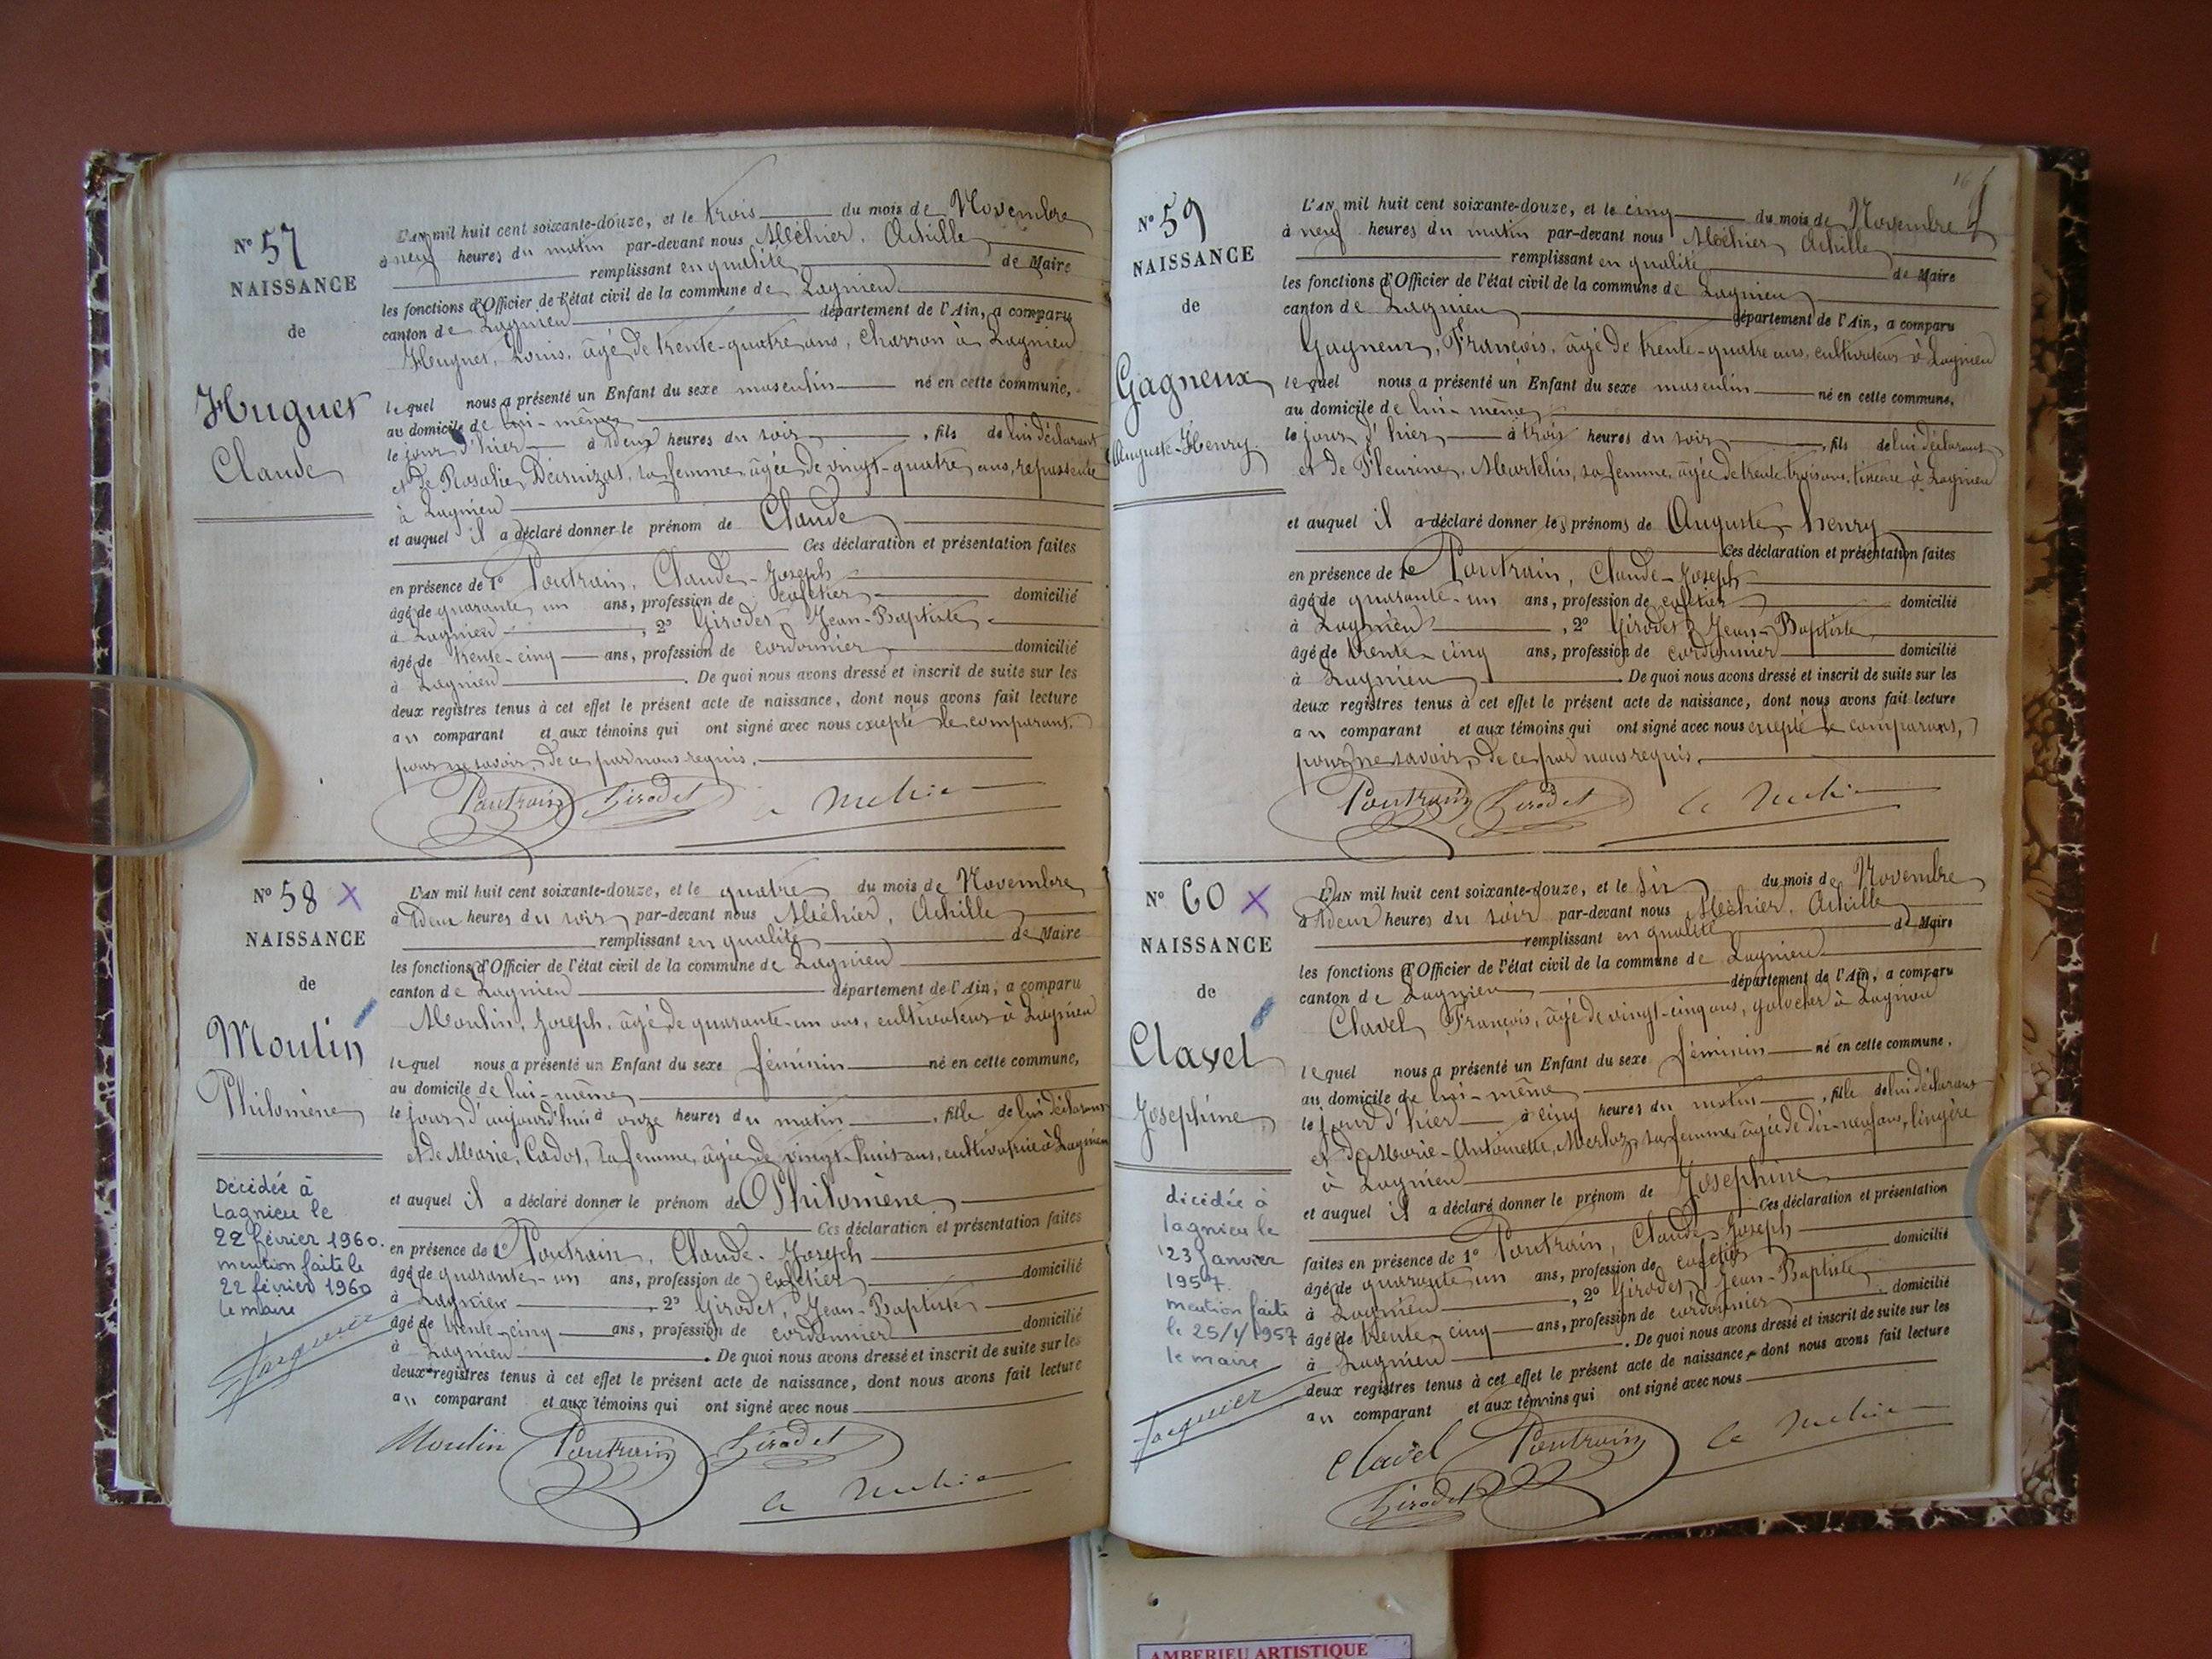 N° 57
NAISSANCE
de
Huguet
Claude
L'AN mil huit cent soixante-douze, et le trois du mois de Novembre
à neuf heures du matin par-devant nous Méhier, Achille
remplissant en qualité de Maire
les fonctions d'Officier de l'état civil de la commune de Lagnieu
canton de Lagnieu département de l'Ain, a comparu
Huguet, Louis, âgé de trente-quatre ans, charron à Lagnieu
lequel nous a présenté un Enfant du sexe masculin né en cette commune,
au domicile de lui-même
le jour d'hier à deux heures du soir, fils de lui déclarant
et de Rosalie, sa femme, âgée de vingt-quatre ans, repasseuse
à Lagnieu
et auquel il a déclaré donner le prénom de Claude
Ces déclaration et présentation faites
en présence de 1° Poutrain, Claude-Joseph
âgé de quarante un ans, profession de cafetier domicilié
à Lagnieu, 2° Girodet, Jean-Baptiste
âgé de trente-cinq ans, profession de cordonnier domicilié
à Lagnieu. De quoi nous avons dressé et inscrit de suite sur les
deux registres tenus à cet effet le présent acte de naissance, dont nous avons fait lecture
au comparant et aux témoins qui ont signé avec nous excepté le comparant,
pour ne savoir, de ce par nous requis.
Poutrain Girodet A Méhier
N° 58 X
NAISSANCE
de
Moulin
Philomène
Décédée à
Lagnieu le
22 février 1960.
mention faite le
22 février 1960
le maire
L'AN mil huit cent soixante-douze, et le quatre du mois de Novembre
à deux heures du soir par-devant nous Méhier, Achille
remplissant en qualité de Maire
les fonctions d'Officier de l'état civil de la commune de Lagnieu
canton de Lagnieu département de l'Ain, a comparu
Moulin, Joseph, âgé de quarante-un ans, cultivateur à Lagnieu
lequel nous a présenté un Enfant du sexe féminin né en cette commune,
au domicile de lui-même
le jour d'aujourd'hui à onze heures du matin, fille de lui déclarant
et de Marie, Cadot, sa femme, âgée de vingt-huit ans, cultivatrice à Lagnieu
et auquel il a déclaré donner le prénom de Philomène
Ces déclaration et présentation faites
en présence de 1° Poutrain, Claude-Joseph
âgé de quarante-un ans, profession de cafetier domicilié
à Lagnieu, 2° Girodet, Jean-Baptiste
âgé de trente-cinq ans, profession de cordonnier domicilié
à Lagnieu. De quoi nous avons dressé et inscrit de suite sur les
deux registres tenus à cet effet le présent acte de naissance, dont nous avons fait lecture
au comparant et aux témoins qui ont signé avec nous
Moulin Poutrain Girodet
A Méhier
16
N° 59
NAISSANCE
de
Gagneux
Auguste-Henry
L'AN mil huit cent soixante-douze, et le cinq du mois de Novembre
à neuf heures du matin par-devant nous Méhier, Achille
remplissant en qualité de Maire
les fonctions d'Officier de l'état civil de la commune de Lagnieu
canton de Lagnieu département de l'Ain, a comparu
Gagneux, François, âgé de trente-quatre ans, cultivateur à Lagnieu
lequel nous a présenté un Enfant du sexe masculin né en cette commune,
au domicile de lui-même
le jour d'hier à trois heures du soir, fils de lui déclarant
et de Fleurine, Martelin, sa femme, âgée de trente-trois ans, tisseuse à Lagnieu
et auquel il a déclaré donner les prénoms de Auguste-henry
Ces déclaration et présentation faites
en présence de 1° Poutrain, Claude-Joseph
âgé de quarante-un ans, profession de cafetier domicilié
à Lagnieu, 2° Girodet, Jean-Baptiste
âgé de trente-cinq ans, profession de cordonnier domicilié
à Lagnieu. De quoi nous avons dressé et inscrit de suite sur les
deux registres tenus à cet effet le présent acte de naissance, dont nous avons fait lecture
au comparant et aux témoins qui ont signé avec nous excepté le comparant,
pour ne savoir, de ce par nous requis.
Poutrain Girodet A Méhier
N° 60 X
NAISSANCE
de
Clavel
Joséphine
décédée à
lagnieu le
23 Janvier
1957.
mention faite
le 25/1/1957
le maire
L'AN mil huit cent soixante-douze, et le six du mois de Novembre
à deux heures du soir par-devant nous Méhier, Achille
remplissant en qualité de Maire
les fonctions d'Officier de l'état civil de la commune de Lagnieu
canton de Lagnieu département de l'Ain, a comparu
Clavel, François, âgé de vingt-cinq ans, à Lagnieu
lequel nous a présenté un Enfant du sexe féminin né en cette commune,
au domicile de lui-même
le jour d'hier à cinq heures du matin, fille de lui déclarant
et de Marie-Antoinette, Merloz, sa femme, âgée de dix-neuf ans, lingère
à Lagnieu
et auquel il a déclaré donner le prénom de Joséphine
Ces déclaration et présentation
faites en présence de 1° Poutrain, Claude-Joseph
âgé de quarante un ans, profession de cafetier domicilié
à Lagnieu, 2° Girodet, Jean-Baptiste
âgé de trente-cinq ans, profession de cordonnier domicilié
à Lagnieu. De quoi nous avons dressé et inscrit de suite sur les
deux registres tenus à cet effet le présent acte de naissance, dont nous avons fait lecture
au comparant et aux témoins qui ont signé avec nous
Clavel Poutrain A Méhier
Girodet
AMBERIEU ARTISTIQUE